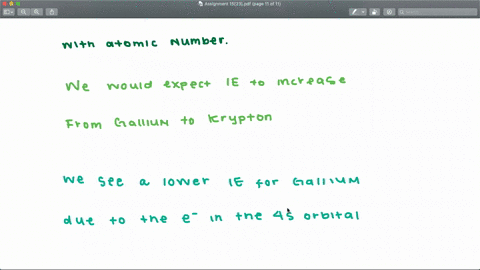 Assignment 10(23).pdf (page 11 of 11)
Search
with atomic number.
We would expect IE to increase
From Gallium to Krypton
We see a lower IE for Gallium
due to the e⁻ in the 4s orbital